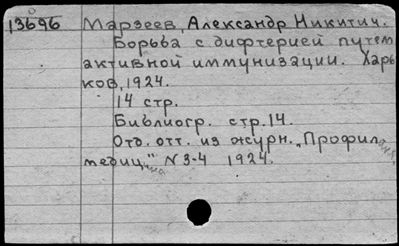 13696 Марзеев, Александр Никитич.
Борьба с дифтерией путем
активной иммунизации. Харь
ков, 1924.
14 стр.
Библиогр. стр. 14.
Отд. отт. из журн. „Профилакт.
медицина" N 3-4 1924.